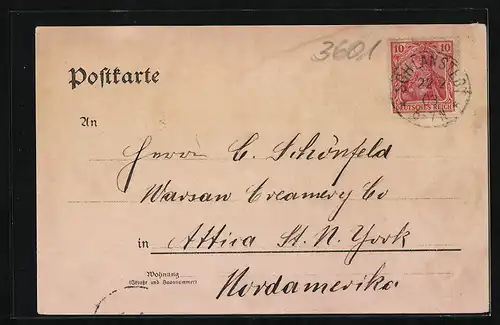 3601
10
DEUTSCHES REICH
22
Postkarte
An
Herrn C. Schönfeld
Warsaw Creamery Co
in Attica St. N. York
Wohnung
(Straße und Hausnummer)
Nordamerika